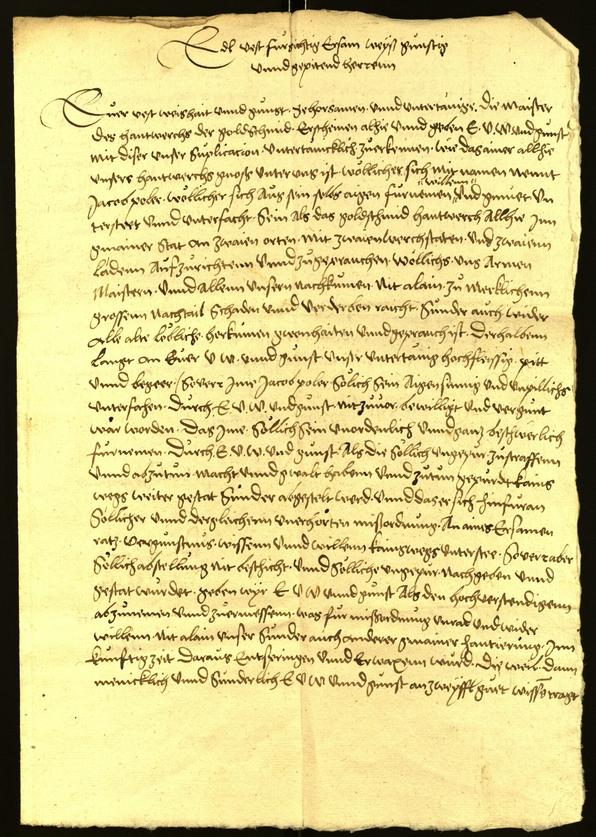 Edl vest fursichtig Ersam weyß gunstig
vnnd gepietend herrenn
Euer vest weishait vnnd gunst. gehorsamen vnnd vntertänige. die Maister
des hantwerchs der goldschmid. Erscheinen alhie vnnd geben E. V. W. vnd gunst
mit diser vnser Suplication vntertänicklich zuerkennen. wie das ainer allhie
vnsers hantwerchs gnoß vnter vns ist wöllicher sich mit namen nennt
Jacob poler. wöllicher sich aus sein selbs aigen furnemen willenn vnd gmuet vn
tersteet vnnd vnterfacht. Sein als das goldschmid hantwerch Allhie Inn
gmainer Stat an zwaien orten. mit zwaien werchstaten. vnd zwaienn
Lädenn Aufzurichtenn vnnd zugeprauchen. wöllichs. vns Armen
Maistern. vnnd Allenn vnsern nachkumen. nit alain. zu mercklichenn
grossem nachtail Schaden vnnd verderben raicht. Sunder auch wider
alle alte löbliche. herkumen gwonhaiten vnnd geprauch ist. Derhalbenn
Langt an Euer V W. vnnd gunst vnser vntertänig hochfleissig. pitt
vnnd beger. Soverr Ime Jacob poler Sölich sein Aigensinnig vnd vnpillichs
vnterfahen. durch E. V. W. vnd gunst nit zuuor. bewilligt vnd vergunt
wär worden. das Ime. Söllich sein vnordenlich vnnd ganz beschwerlich
furnemen. durch E. V. W. vnd gunst. Als die Söllich vngepur zustraffenn
vnnd abzutun. macht vnnd gwalt habenn vnnd zutun
wegs weiter gestat Sunder abgestelt werd. vnnd das er sich hinfuran
Söllicher vnnd dergleichenn vnerhörten mißordnung. An aines Ersamen
rats. vergunstnus. wissenn vnnd willenn kainswegs vnterstee. Soverr aber
Söllich abstellung nit beschicht. vnnd Sölliche vngepur. nachgeben vnnd
gestat wurdet. geben wir E V W vnnd gunst Als den hochverstendigenn
abzunemen vnnd zuermessenn. was fur mißordnung vnrad vnd wider
willenn nit alain vnser Sunder auch anderer gmainer hantierung. Inn
kunfftig zeit daraus Entspringen vnnd Erwagsn wurd. die weil. dann
menicklich vnnd Sunderlich E V W vnnd gunst an zweyffl guet wissn tragt